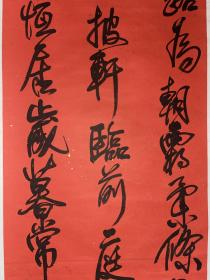 為朝霜柔條
披軒臨前庭
恆居歲暮常